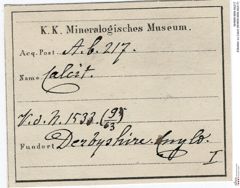 K. K. Mineralogisches Museum.
Acq. Post. A. b. 217.
Name Calcit.
V. d. N. 1533 (95/63)
Fundort Derbyshire.
I